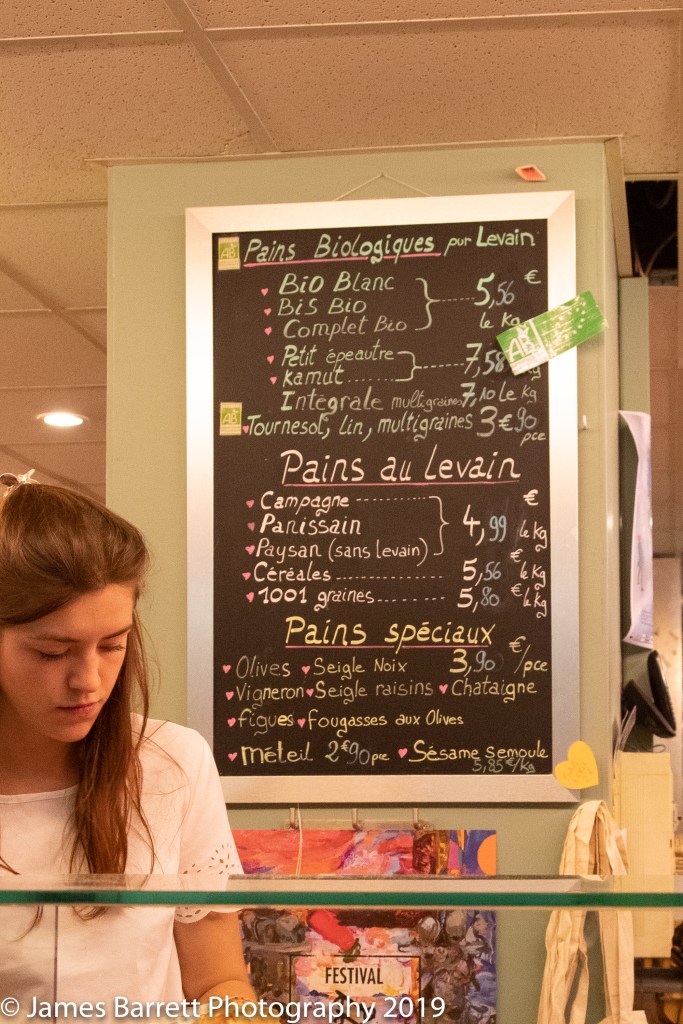 AB Pains Biologiques pur Levain
Bio Blanc
BiS Bio 5,56 €
Complet Bio le Kg
AB
Petit épeautre 7,58
Kamut Kg
Intégrale multigraines 7,10 le Kg
AB Tournesol, Lin, multigraines 3€90 pce
Pains au Levain
Campagne €
Parissain 4,99 le Kg
Paysan (sans levain)
Céréales 5,56 € le Kg
1001 graines 5,80 € le Kg
Pains spéciaux
Olives Seigle Noix 3,90 €/pce
Vigneron Seigle raisins Chataigne
figues Fougasses aux Olives
méteil 2€90 pce Sésame semoule
5,85 €/kg
FESTIVAL
© James Barrett Photography 2019